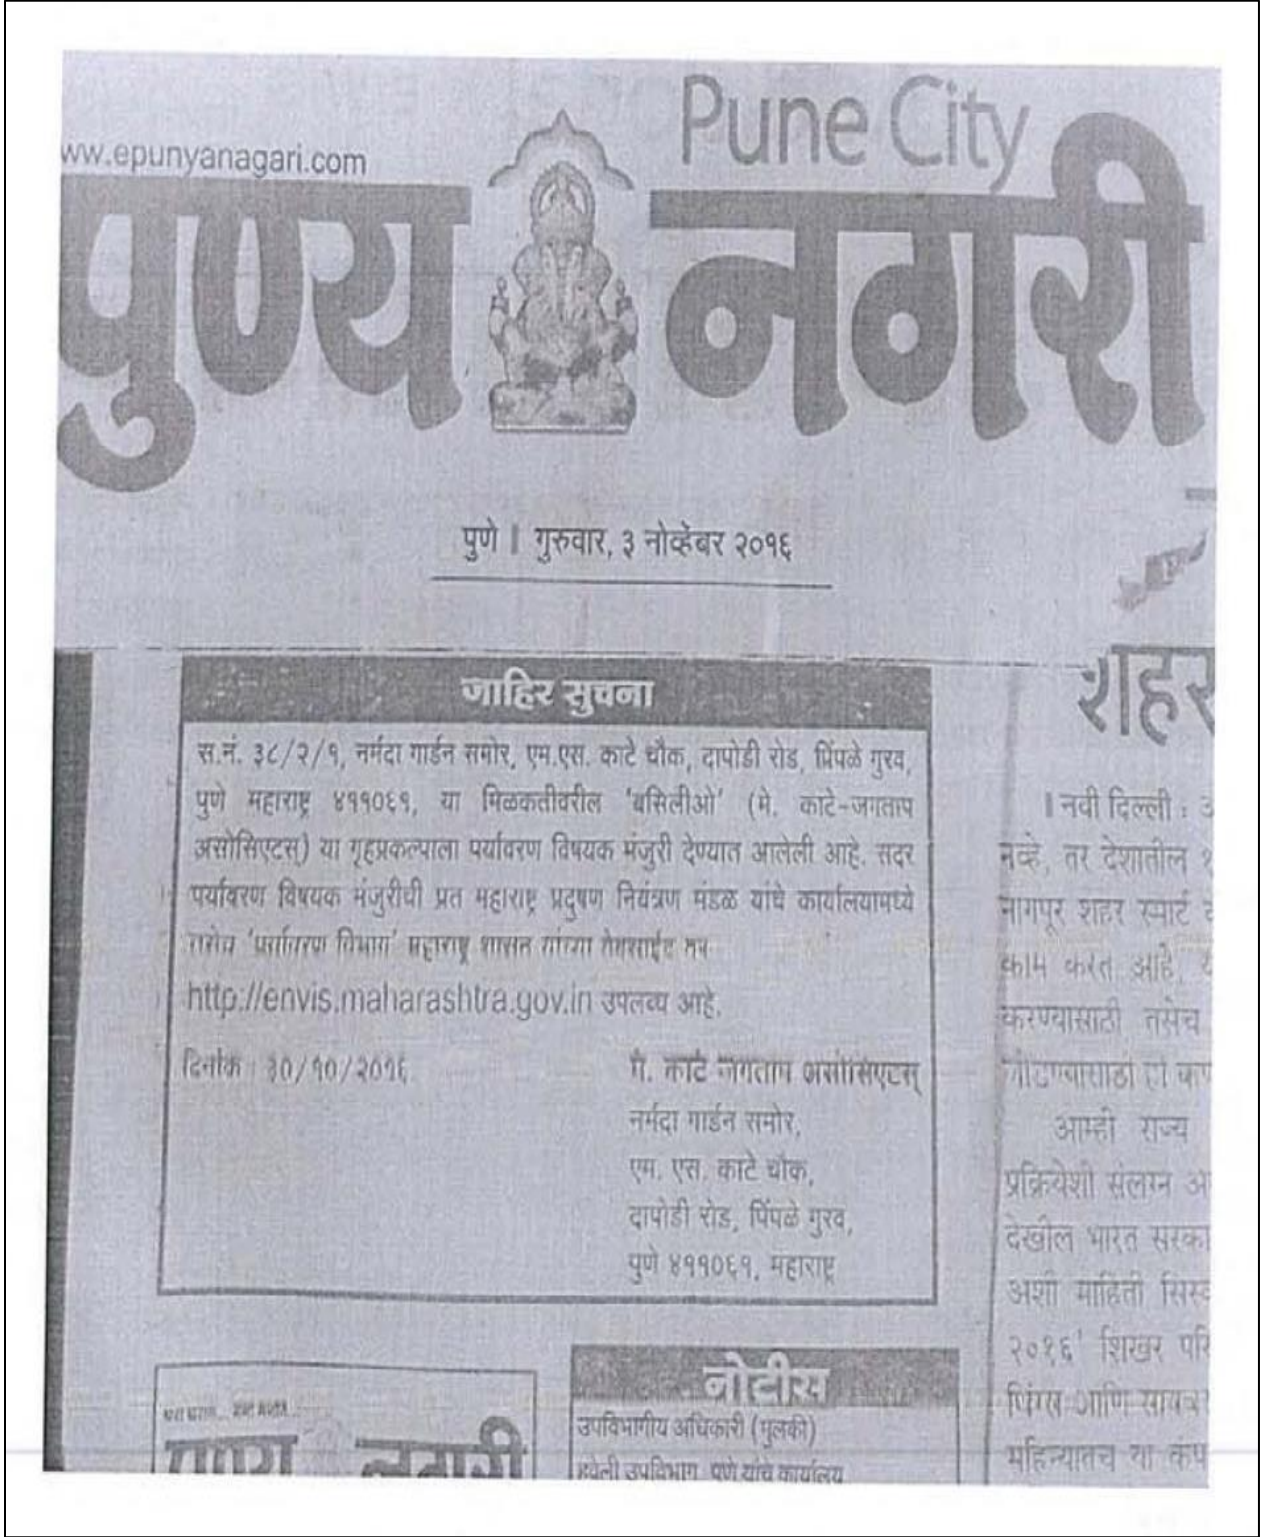 Pune City
ww.epunyanagari.com
पुण्य नगरी
पुणे | गुरुवार, ३ नोव्हेंबर २०१६
जाहिर सुचना
स.नं. ३८/२/१, नर्मदा गार्डन समोर, एम.एस. काटे चौक, दापोडी रोड, पिंपळे गुरव,
पुणे महाराष्ट्र ४११०६१, या मिळकतीवरील 'बसिलीओ' (मे. काटे-जगताप
असोसिएटस्) या गृहप्रकल्पाला पर्यावरण विषयक मंजुरी देण्यात आलेली आहे. सदर
पर्यावरण विषयक मंजुरीची प्रत महाराष्ट्र प्रदुषण नियंत्रण मंडळ यांचे कार्यालयामध्ये
तसेच 'पर्यावरण विभाग' महाराष्ट्र शासन यांच्या वेबसाईट वर
http://envis.maharashtra.gov.in उपलब्ध आहे.
दिनांक : ३०/१०/२०१६
मे. काटे जगताप असोसिएटस्
नर्मदा गार्डन समोर,
एम. एस. काटे चौक,
दापोडी रोड, पिंपळे गुरव,
पुणे ४११०६१, महाराष्ट्र
पुण्य नगरी
नोटीस
उपविभागीय अधिकारी (मुलकी)
हवेली उपविभाग, पुणे यांचे कार्यालय
शहर
नवी दिल्ली :
नव्हे, तर देशातील
नागपूर शहर स्मार्ट
काम करत आहे.
करण्यासाठी तसेच
आम्ही राज्य
प्रक्रियेशी संलग्न
देखील भारत सरका
अशी माहिती
२०१६' शिखर परि
आणि
महिन्यातच या कंप